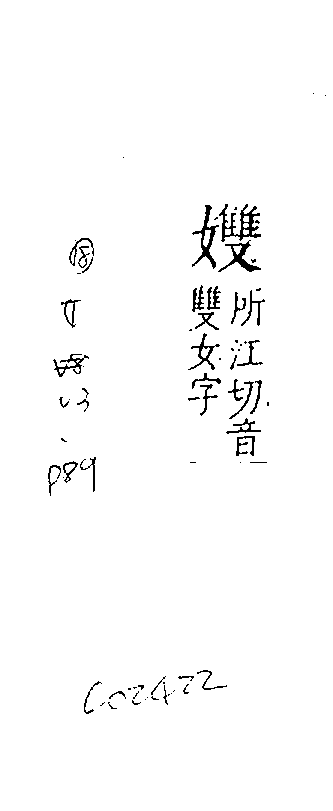 孇
所江切音
雙女字
P89
C02422